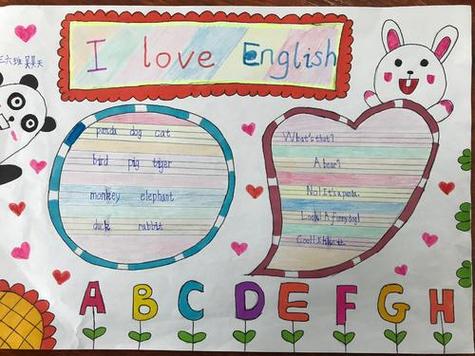 I love English
三六班 吴昊天
panda dog cat
bird pig tiger
monkey elephant
duck rabbit
What's that?
A bear?
No! It's a panda.
Look! A funny dog!
Cool! I like it.
A B C D E F G H